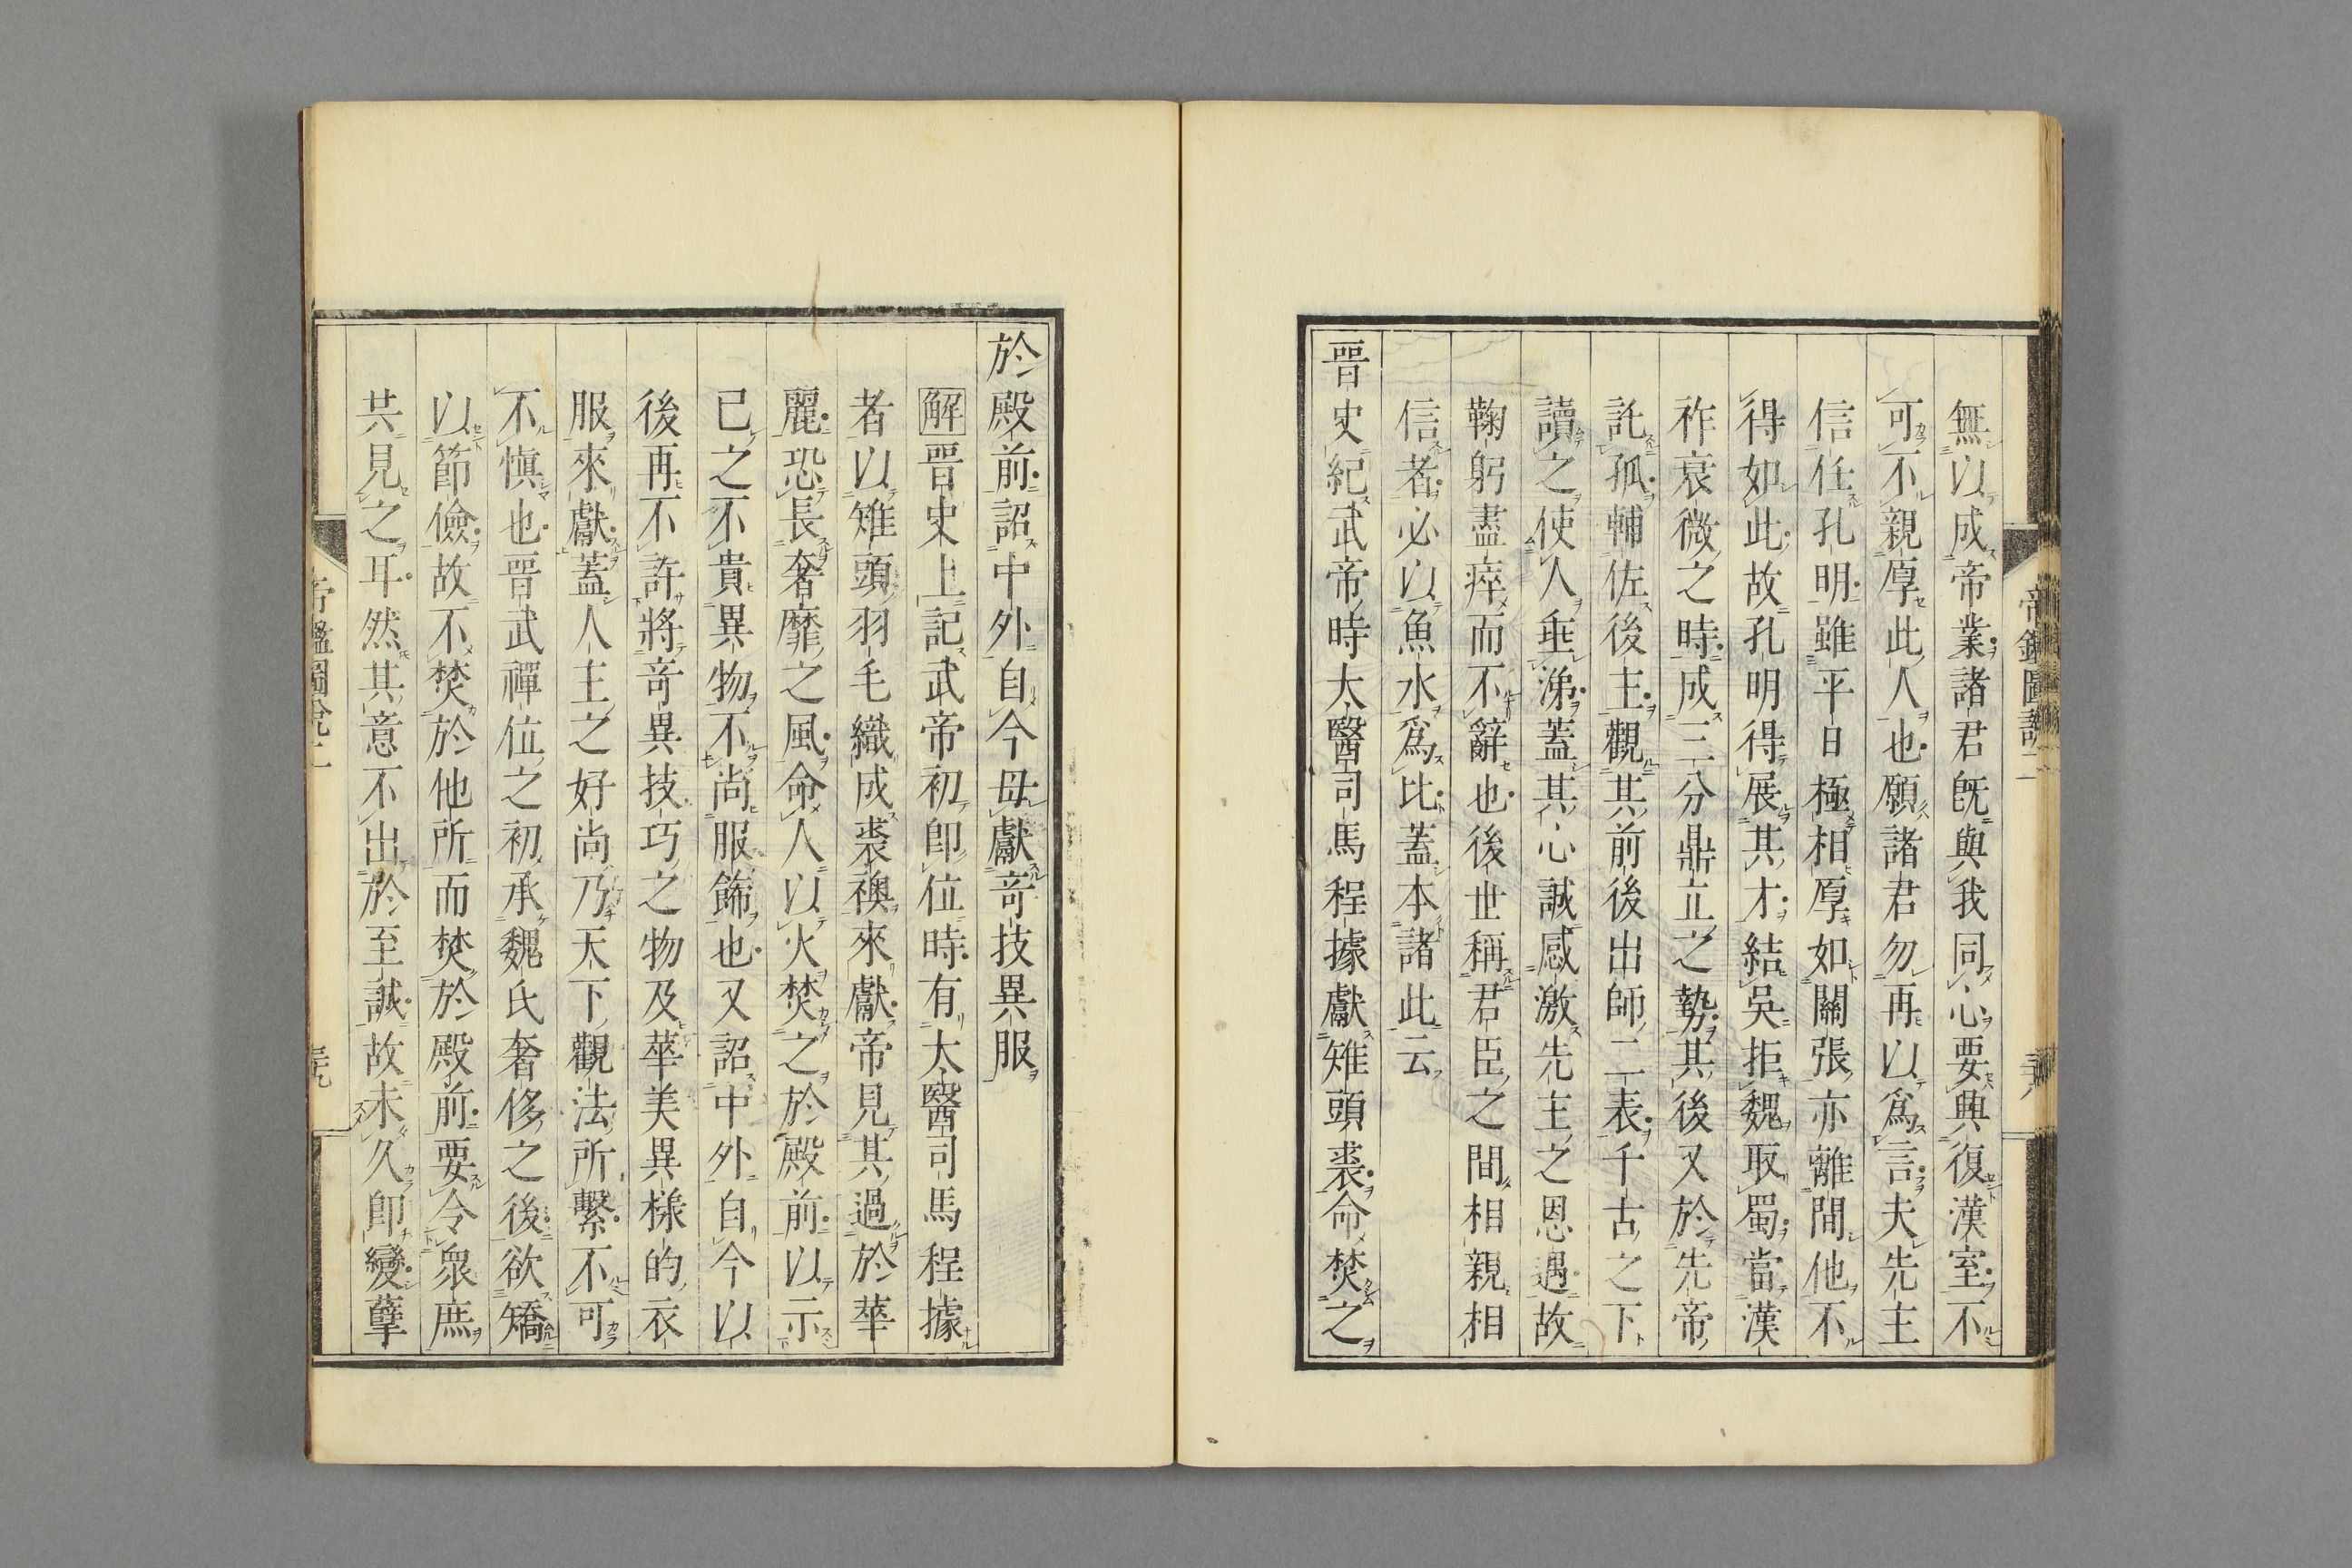 無以成帝業諸君既與我同心要興復漢室不
可不親厚此人也願諸君勿再以爲言夫先主
信任孔明雖平日極相厚如關張亦離間他不
得如此故孔明得展其才結吳拒魏取蜀當漢
祚衰微之時成三分鼎立之勢其後又於先帝
託孤輔佐後主觀其前後出師二表千古之下
讀之使人垂涕蓋其心誠感激先主之恩遇故
鞠躬盡瘁而不辭也後世稱君臣之間相親相
信者必以魚水爲比蓋本諸此云
晋史紀武帝時大醫司馬程據獻雉頭裘命焚之
於殿前詔中外自今毋獻奇技異服
解晋史上記武帝初即位時有大醫司馬程據
者以雉頭羽毛織成裘襖來獻帝見其過於華
麗恐長奢靡之風命人以火焚之於殿前以示
已之不貴異物不尚服飾也又詔中外自今以
後再不許將奇異技巧之物及華美異樣的衣
服來獻蓋人主之好尚乃天下觀法所繫不可
不愼也晋武禪位之初承魏氏奢侈之後欲矯
以節儉故不焚於他所而焚於殿前要令衆庶
共見之耳然其意不出於至誠故未久即變孽